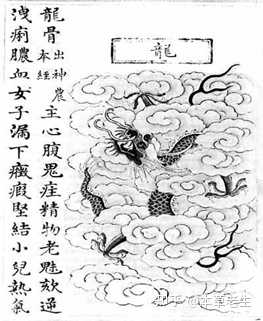 龍
龍骨出神農本經主心腹鬼疰精物老魅欬逆
洩痢膿血女子漏下癥瘕堅結小兒熱氣
知乎 @本草老生